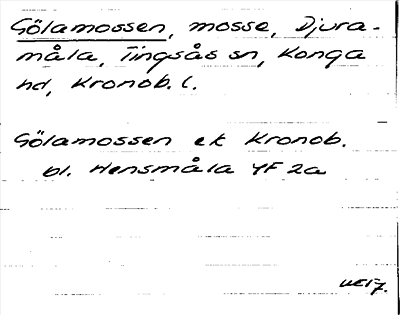 Gölamossen, mosse, Djura-
måla, Tingsås sn, Konga
hd, Kronob. l.
Gölamossen ek Kronob.
bl. Hensmåla YF 2a